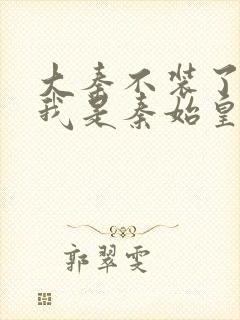 大秦不装了
我是秦始皇
郭翠雯